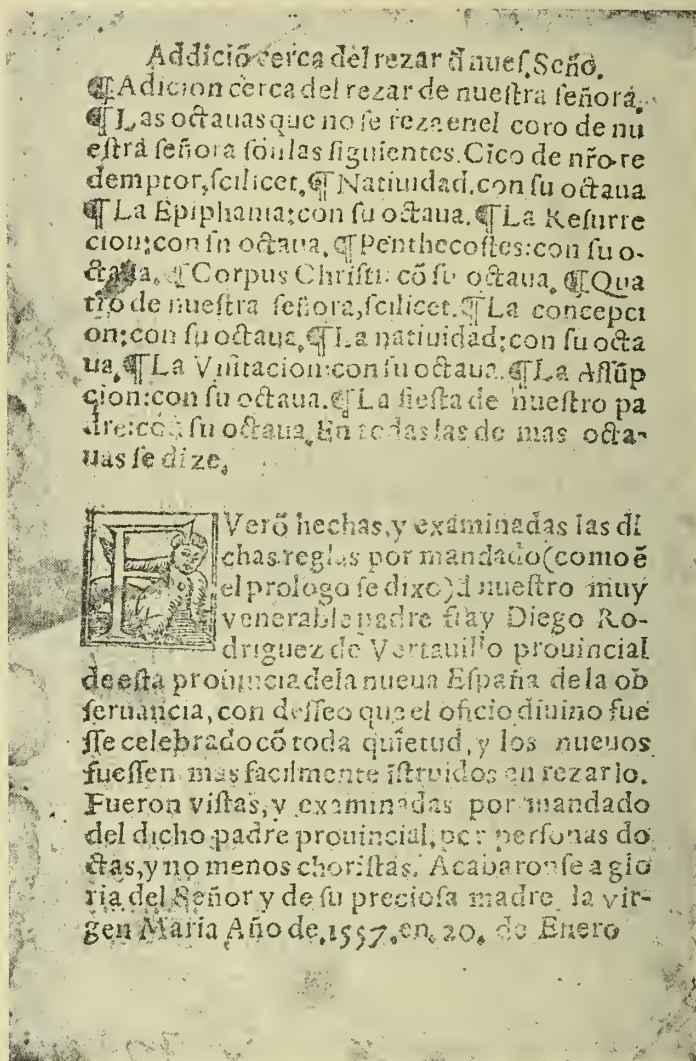 Addiciõ cerca del rezar đ nueſ. Señõ.
¶Adicion cerca del rezar de nueſtra ſeñora.
¶Las octauas que no ſe rezã enel coro de nu
eſtra ſeñora ſon las ſiguientes. Cico de nr̃o re
demptor, ſcilicet, ¶Natiuidad. con ſu octaua
¶La Epiphania: con ſu octaua. ¶La Reſurre
cion: con ſu octaua. ¶Penthecoſtes: con ſu o-
ctaua. ¶Corpus Chriſti: cõ ſu octaua. ¶Qua
tro de nueſtra ſeñora, ſcilicet. ¶La concepci
on: con ſu octaua. ¶La natiuidad: con ſu octa
ua. ¶La Viſitacion: con ſu octaua. ¶La Aſſũp
cion: con ſu octaua. ¶La fieſta de nueſtro pa
dre: con ſu octaua. En todas las de mas octa-
uas ſe dize.
FVerõ hechas, y examinadas las di
chas reglas por mandado (como ẽ
el prologo ſe dixo) đ nueſtro muy
venerable padre fray Diego Ro-
driguez de Vertauillo prouincial
de eſta prouincia dela nueua Eſpaña de la ob
ſeruancia, con deſſeo que el oficio diuino fue
ſſe celebrado cõ toda quietud, y los nueuos
fueſſen mas facilmente ĩſtruidos en rezarlo.
Fueron viſtas, y examinadas por mandado
del dicho padre prouincial, por perſonas do
ctas, y no menos choriſtas. Acabaronſe a glo
ria del Señor y de ſu precioſa madre la vir-
gen Maria Año de. 1557. en. 20. de Enero